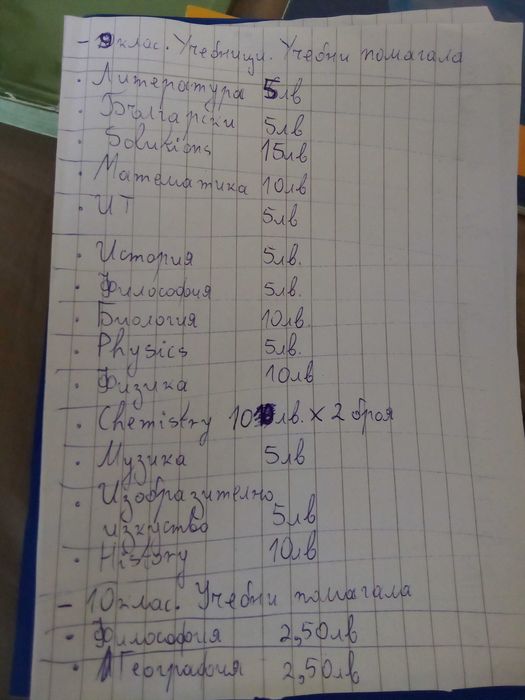 - 9 клас. Учебници. Учебни помагала
· Литература 5лв
· Български 5лв
· Solutions 15лв
· Математика 10лв
· ИТ 5лв
· История 5лв.
· Философия 5лв.
· Биология 10лв.
· Physics 5лв.
· Физика 10лв
· Chemistry 10лв. x 2 броя
· Музика 5лв
· Изобразително
изкуство 5лв
· History 10лв
- 10 клас. Учебни помагала
· Философия 2,50лв
· География 2,50лв